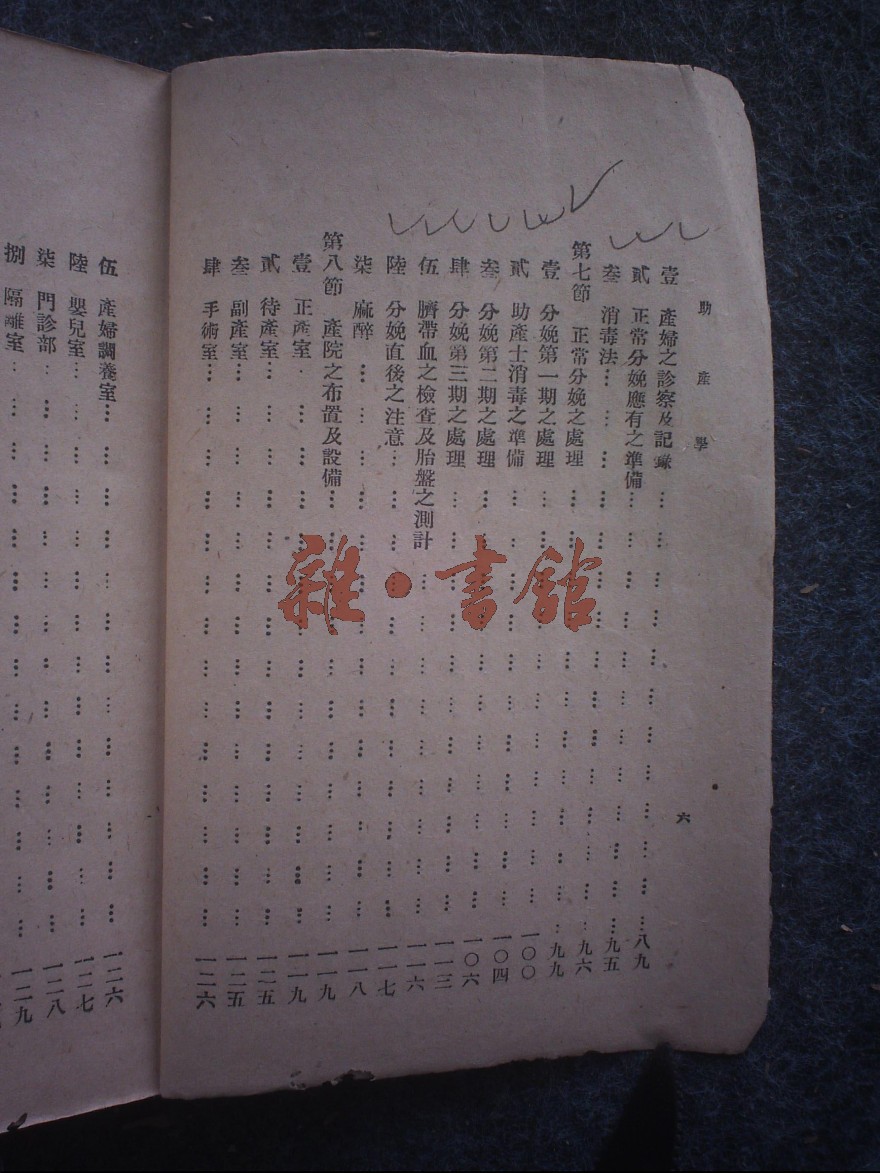 助產學 六
壹 產婦之診察及記錄 八九
貳 正常分娩應有之準備 九五
叁 消毒法 九六
第七節 正常分娩之處理 九九
壹 分娩第一期之處理 一〇〇
貳 助產士消毒之準備 一〇四
叁 分娩第二期之處理 一〇六
肆 分娩第三期之處理 一一三
伍 臍帶血之檢查及胎盤之測計 一一六
陸 分娩直後之注意 一一七
柒 麻醉 一一八
第八節 產院之布置及設備 一一九
壹 正產室 一一九
貳 待產室 一二五
叁 副產室 一二五
肆 手術室 一二六
伍 產婦調養室 一二六
陸 嬰兒室 一二七
柒 門診部 一二八
捌 隔離室 一二九
雜·書館